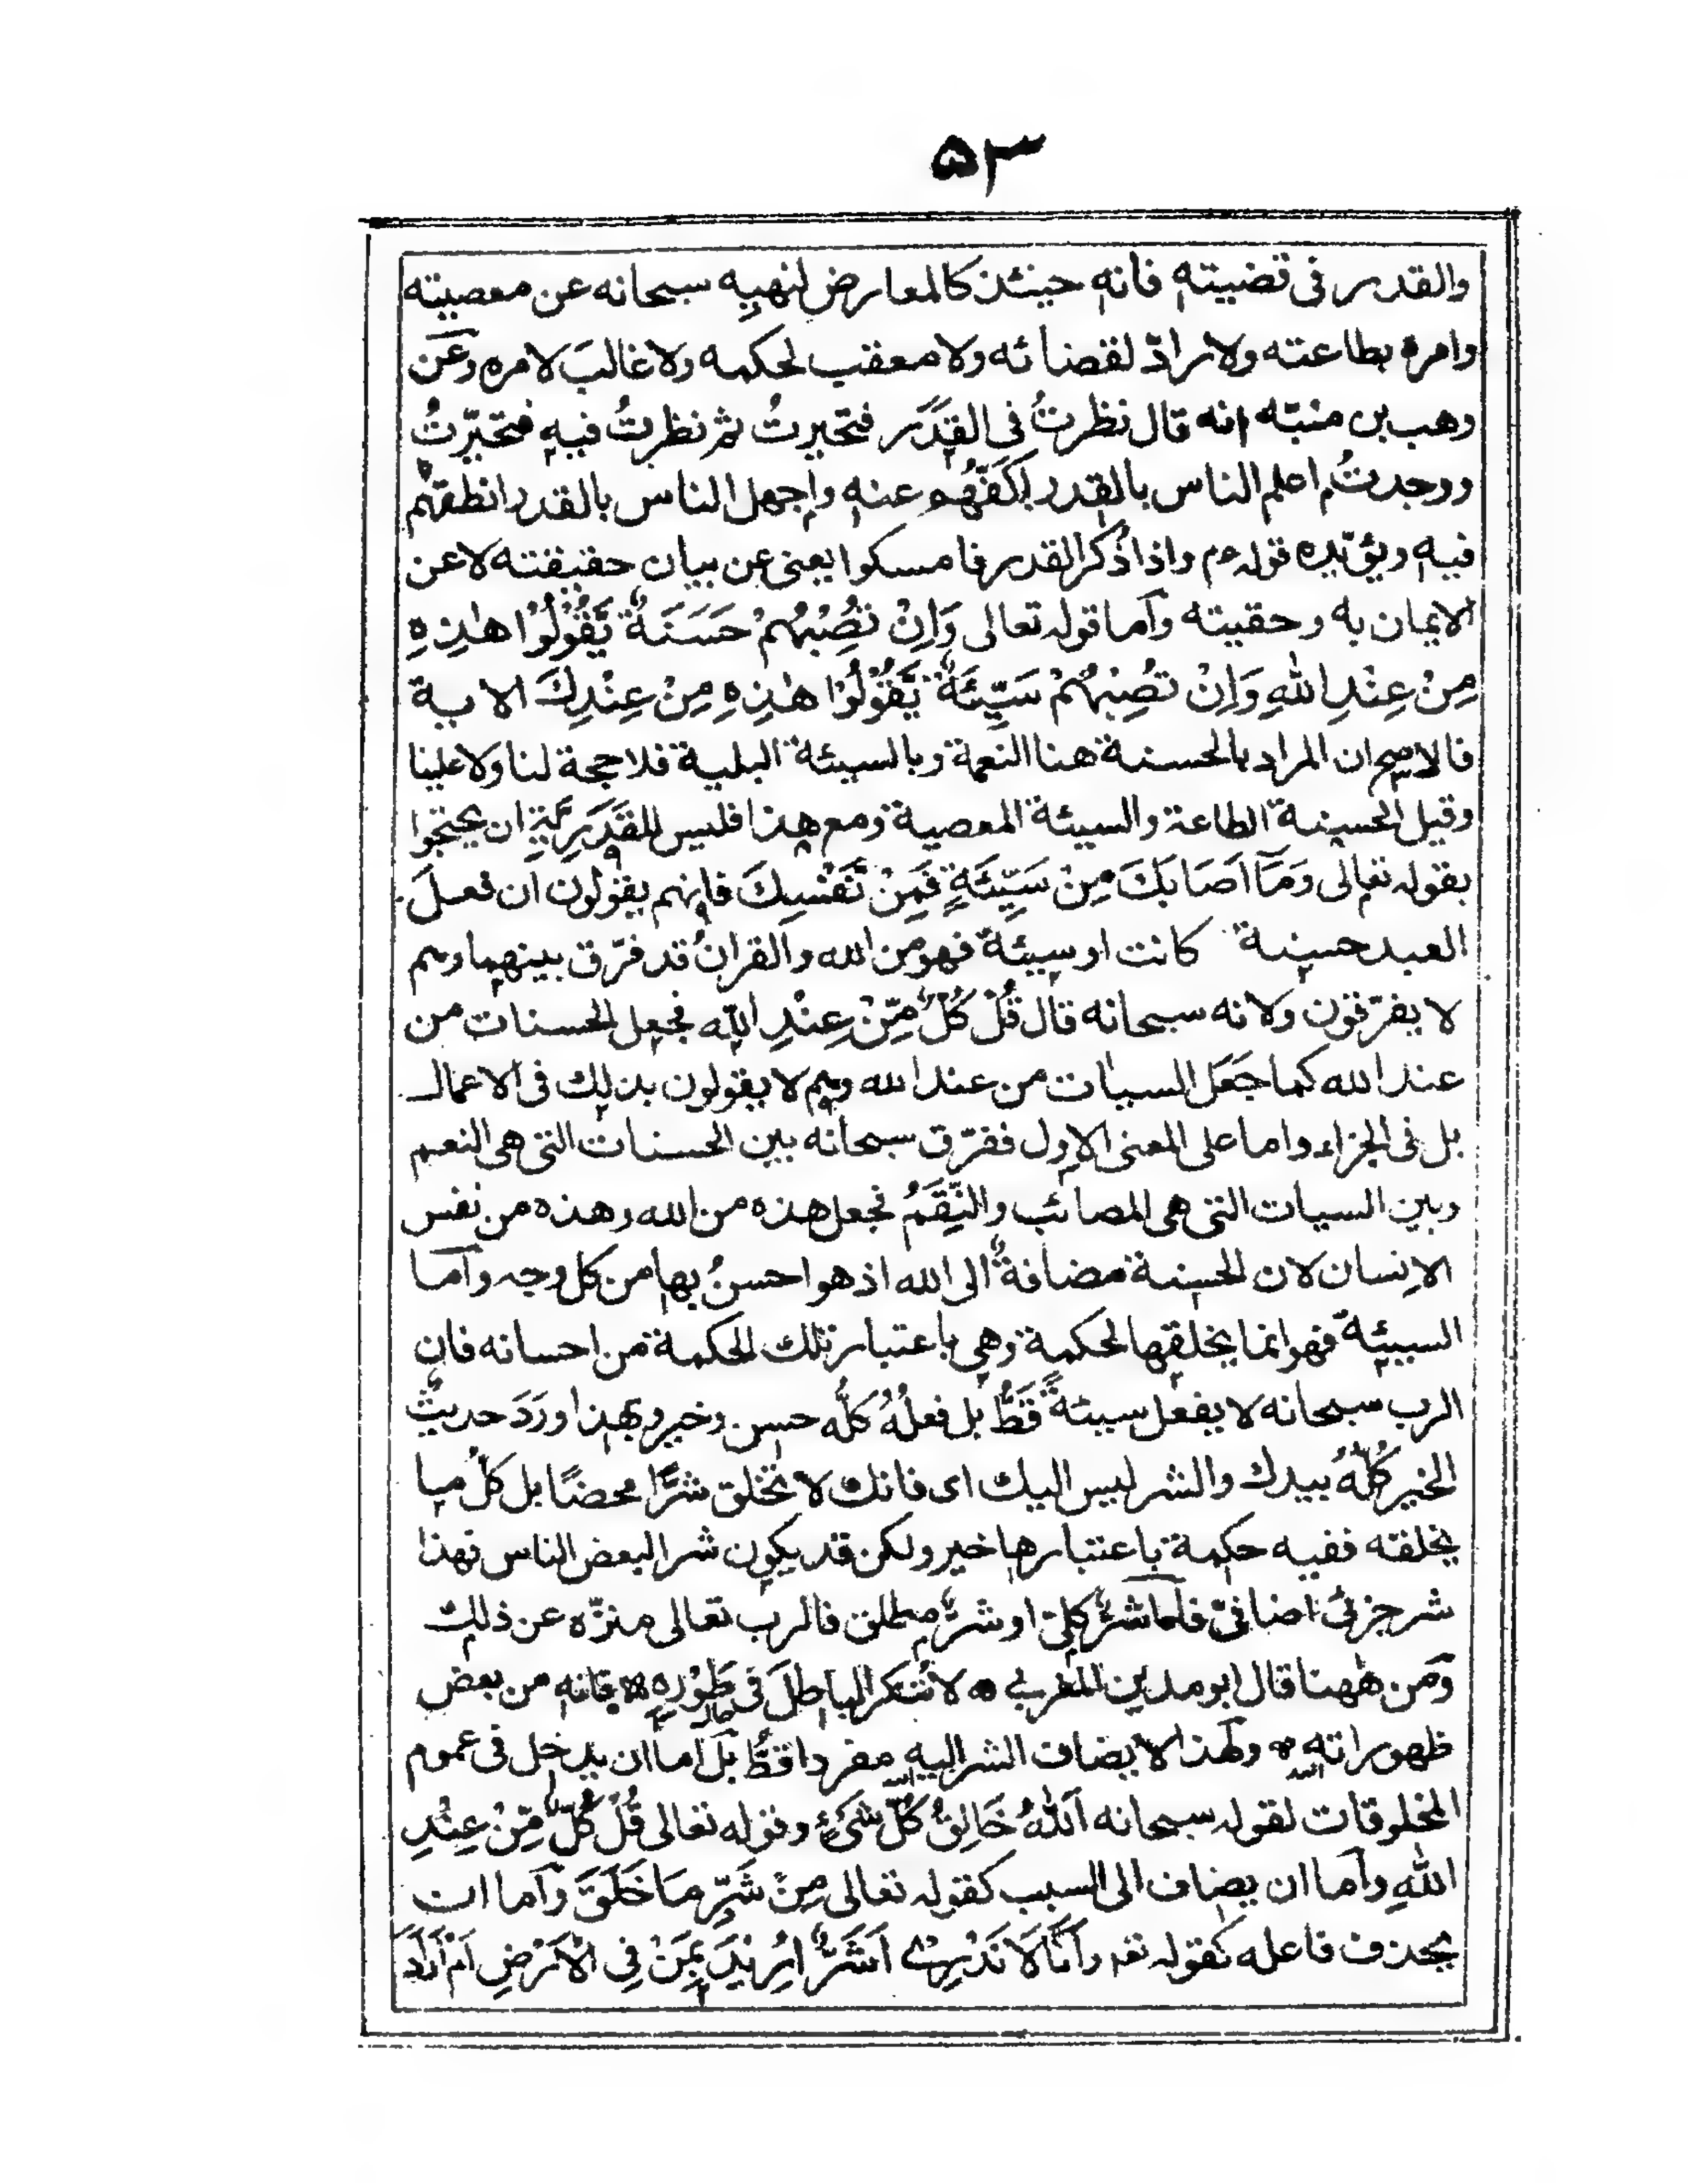 ۵۳
والقدر فى قضيته فانه حينئذ كالمعارض لنهيه سبحانه عن معصيته
وامره بطاعته ولا رادّ لقضائه ولا معقب لحكمه ولا غالبَ لامره وعن
وهب بن منبّه انه قال نظرتُ فى القدَر فتحيرتُ ثم نظرتُ فيه فتحيّرتُ
ووجدتُ اعلم الناس بالقدر اكفّهُم عنه واجهل الناس بالقدر انطقهم
فيه ويؤيّده قوله عم واذا ذُكر القدر فامسكوا يعنى عن بيان حقيقته لا عن
الايمان به وحقيته وآما قوله تعالى وَاِنْ تُصِبْهُمْ حَسَنَةٌ يَّقُوْلُوْا هٰذِهِ
مِنْ عِنْدِ اللهِ وَاِنْ تُصِبْهُمْ سَيِّئَةٌ يَّقُوْلُوْا هٰذِهِ مِنْ عِنْدِكَ الاية
فالاصح ان المراد بالحسنة هنا النعمة وبالسيئة البلية فلا حجة لنا ولا علينا
وقيل الحسنة الطاعة والسيئة المعصية ومع هذا فليس للقدَرِيَّةِ ان يحتجوا
بقوله تعالى وَمَآ اَصَابَكَ مِنْ سَيِّئَةٍ فَمِنْ نَّفْسِكَ فانهم يقولون ان فعلَ
العبد حسنة كانت او سيئة فهو من الله والقرانُ قد فرّق بينهما وهم
لا يفرّقون ولانه سبحانه قال قُلْ كُلٌّ مِّنْ عِنْدِ الله فجعل الحسنات من
عند الله كما جَعَل السيات من عند الله وهم لا يقولون بذلك فى الاعمال
بل فى الجزاء واما على المعنى الاول ففرّق سبحانه بين الحسنات التى هى النعم
وبين السيات التى هى المصائب والنِّقَمُ فجعل هذه من الله وهذه من نفس
الانسان لان الحسنة مضافةٌ الى الله اذ هو احسنُ بها من كل وجه وآما
السيئة فهو انما يخلقها لحكمة وهى باعتبار تلك الحكمة من احسانه فان
الرب سبحانه لا يفعل سيئةً قَطُّ بل فعلُهُ كلُّه حسن وخير ولهذا ورَدَ حديثُ
الخير كُلُّهُ بيدك والشر ليس اليك اى فانك لا تخلق شرًّا محضًا بل كلُ ما
يخلقه ففيه حكمة باعتبارها خير ولكن قد يكون شرا لبعض الناس فهذا
شر جزئى اضافىّ فاما شرٌّ كلىّ او شرٌّ مطلق فالرب تعالى منزّه عن ذلك
ومن ههنا قال ابو مدين المغربى لا تُنكر الباطلَ فى طَوْرِه فانه من بعض
ظهوراته ولهذا لا يضاف الشر اليه مفردا قطُّ بل اما ان يدخل فى عموم
المخلوقات لقوله سبحانه اَللهُ خَالِقُ كُلِّ شَىْءٍ وقوله تعالى قُلْ كُلٌّ مِّنْ عِنْدِ
اللهِ وآما ان يضاف الى السبب كقوله تعالى مِنْ شَرِّ مَا خَلَقَ وآما ان
يحذف فاعله كقوله تعہ وَاَنَّا لَا نَدْرِىْ اَشَرٌّ اُرِيْدَ بِمَنْ فِى الْاَرْضِ اَمْ اَرَادَ